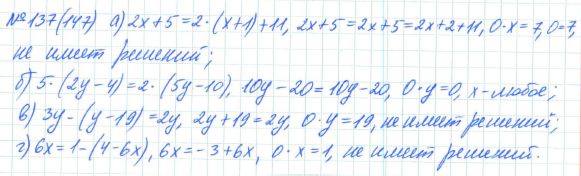 №137(147) а) 2x+5=2·(x+1)+11, 2x+5=2x+5=2x+2+11, 0·x=7, 0=7,
не имеет решений;
б) 5·(2y-4)=2·(5y-10), 10y-20=10y-20, 0·y=0, x-любое;
в) 3y-(y-19)=2y, 2y+19=2y, 0·y=19, не имеет решений;
г) 6x=1-(4-6x), 6x=-3+6x, 0·x=1, не имеет решений.